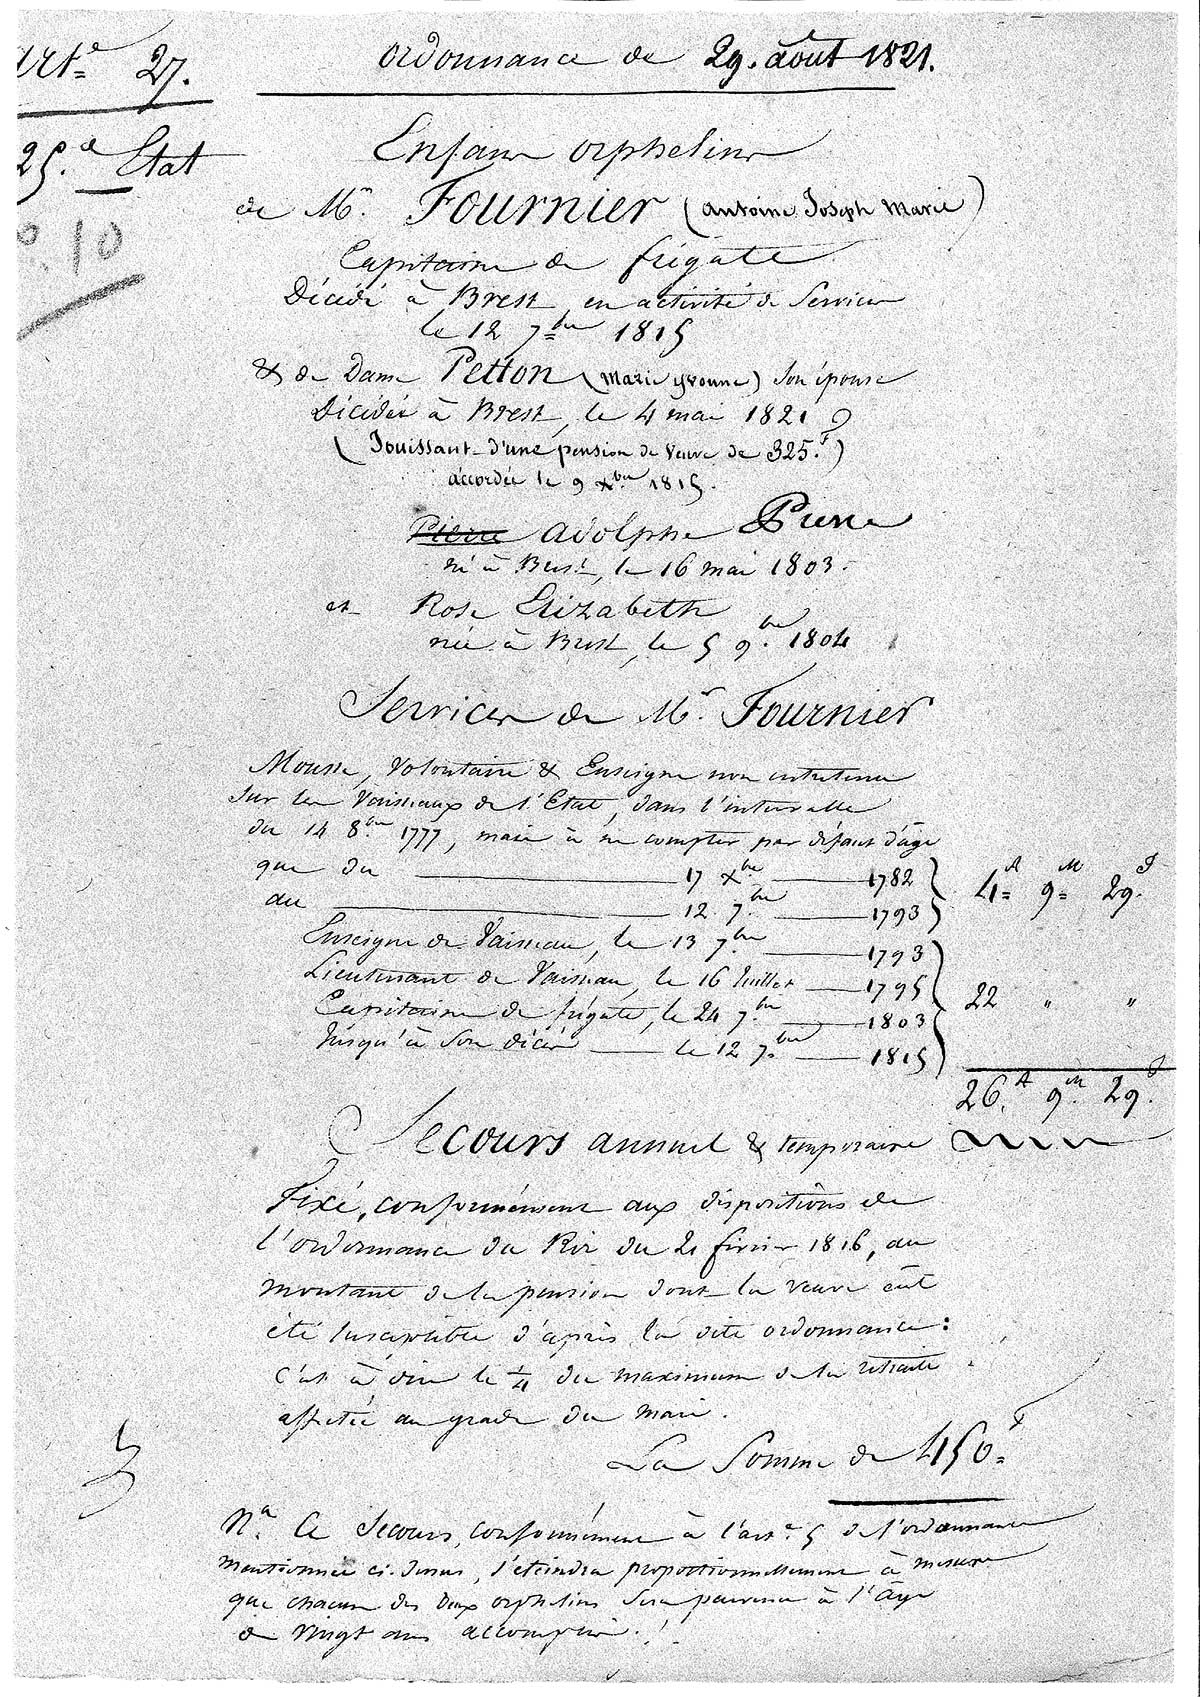 Arte 27.
ordonnance de 29. août 1821.
25.e Etat
No. 10
Enfans orphelins
de Mr. Fournier (Antoine Joseph Marie)
Capitaine de frégate
Décédé à Brest, en activité de Service
le 12 7bre 1815
& de Dame Petton (Marie yvonne) son épouse
Décédée à Brest, le 4 mai 1821
(Jouissant d'une pension de Veuve de 325.f)
accordée le 9 Xbre 1815.
Pierre adolphe Pierre
né à Brest, le 16 mai 1803.
et Rose Elizabeth
née à Brest, le 5 9.bre 1804
Services de Mr. Fournier
Mousse, Volontaire & Enseigne non entretenu
Sur les Vaisseaux de l'Etat, dans l'intervalle
du 14 8.bre 1777, mais à ne compter par défaut d'âge
que du 17 Xbre 1782 4=A 9=M 29.J
au 12 7.bre 1793
Enseigne de Vaisseau, le 13 7bre 1793
Lieutenant de Vaisseau, le 16 Juillet 1795 22 " "
Capitaine de frégate, le 24 7.bre 1803
Jusqu'à son décès le 12 7.bre 1815
26.A 9M. 29.J
Secours annuel & temporaire
Fixé, conformément aux dispositions de
l'ordonnance du Roi du 21 février 1816, au
montant de la pension dont la veuve eût
été susceptible d'après la dite ordonnance:
c'est à dire le 1/4 du maximum de la retraite
affectée au grade du mari.
La Somme de 450f=
Na. Ce Secours, conformément à l'art.e 5 de l'ordonnance
mentionnée ci-dessus, s'éteindra proportionnellement à mesure
que chacun des deux orphelins sera parvenu à l'âge
de vingt ans accomplis.